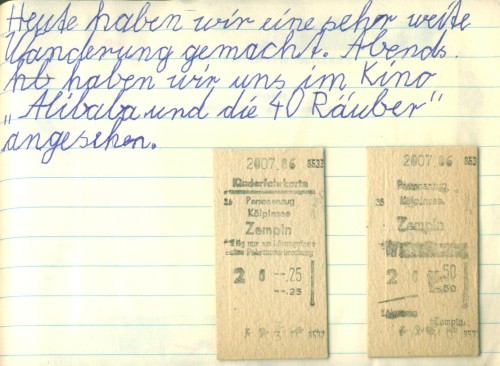 Heute haben wir eine sehr weite
Wanderung gemacht. Abends
haben wir uns im Kino
„Alibaba und die 40 Räuber"
angesehen.
2007.06 8533
Kinderfahrkarte
Personenzug
Kölpinsee
Zempin
2 --.25
--.25
2007.06 853
Personenzug
Kölpinsee
Zempin
2 .50
Zempin